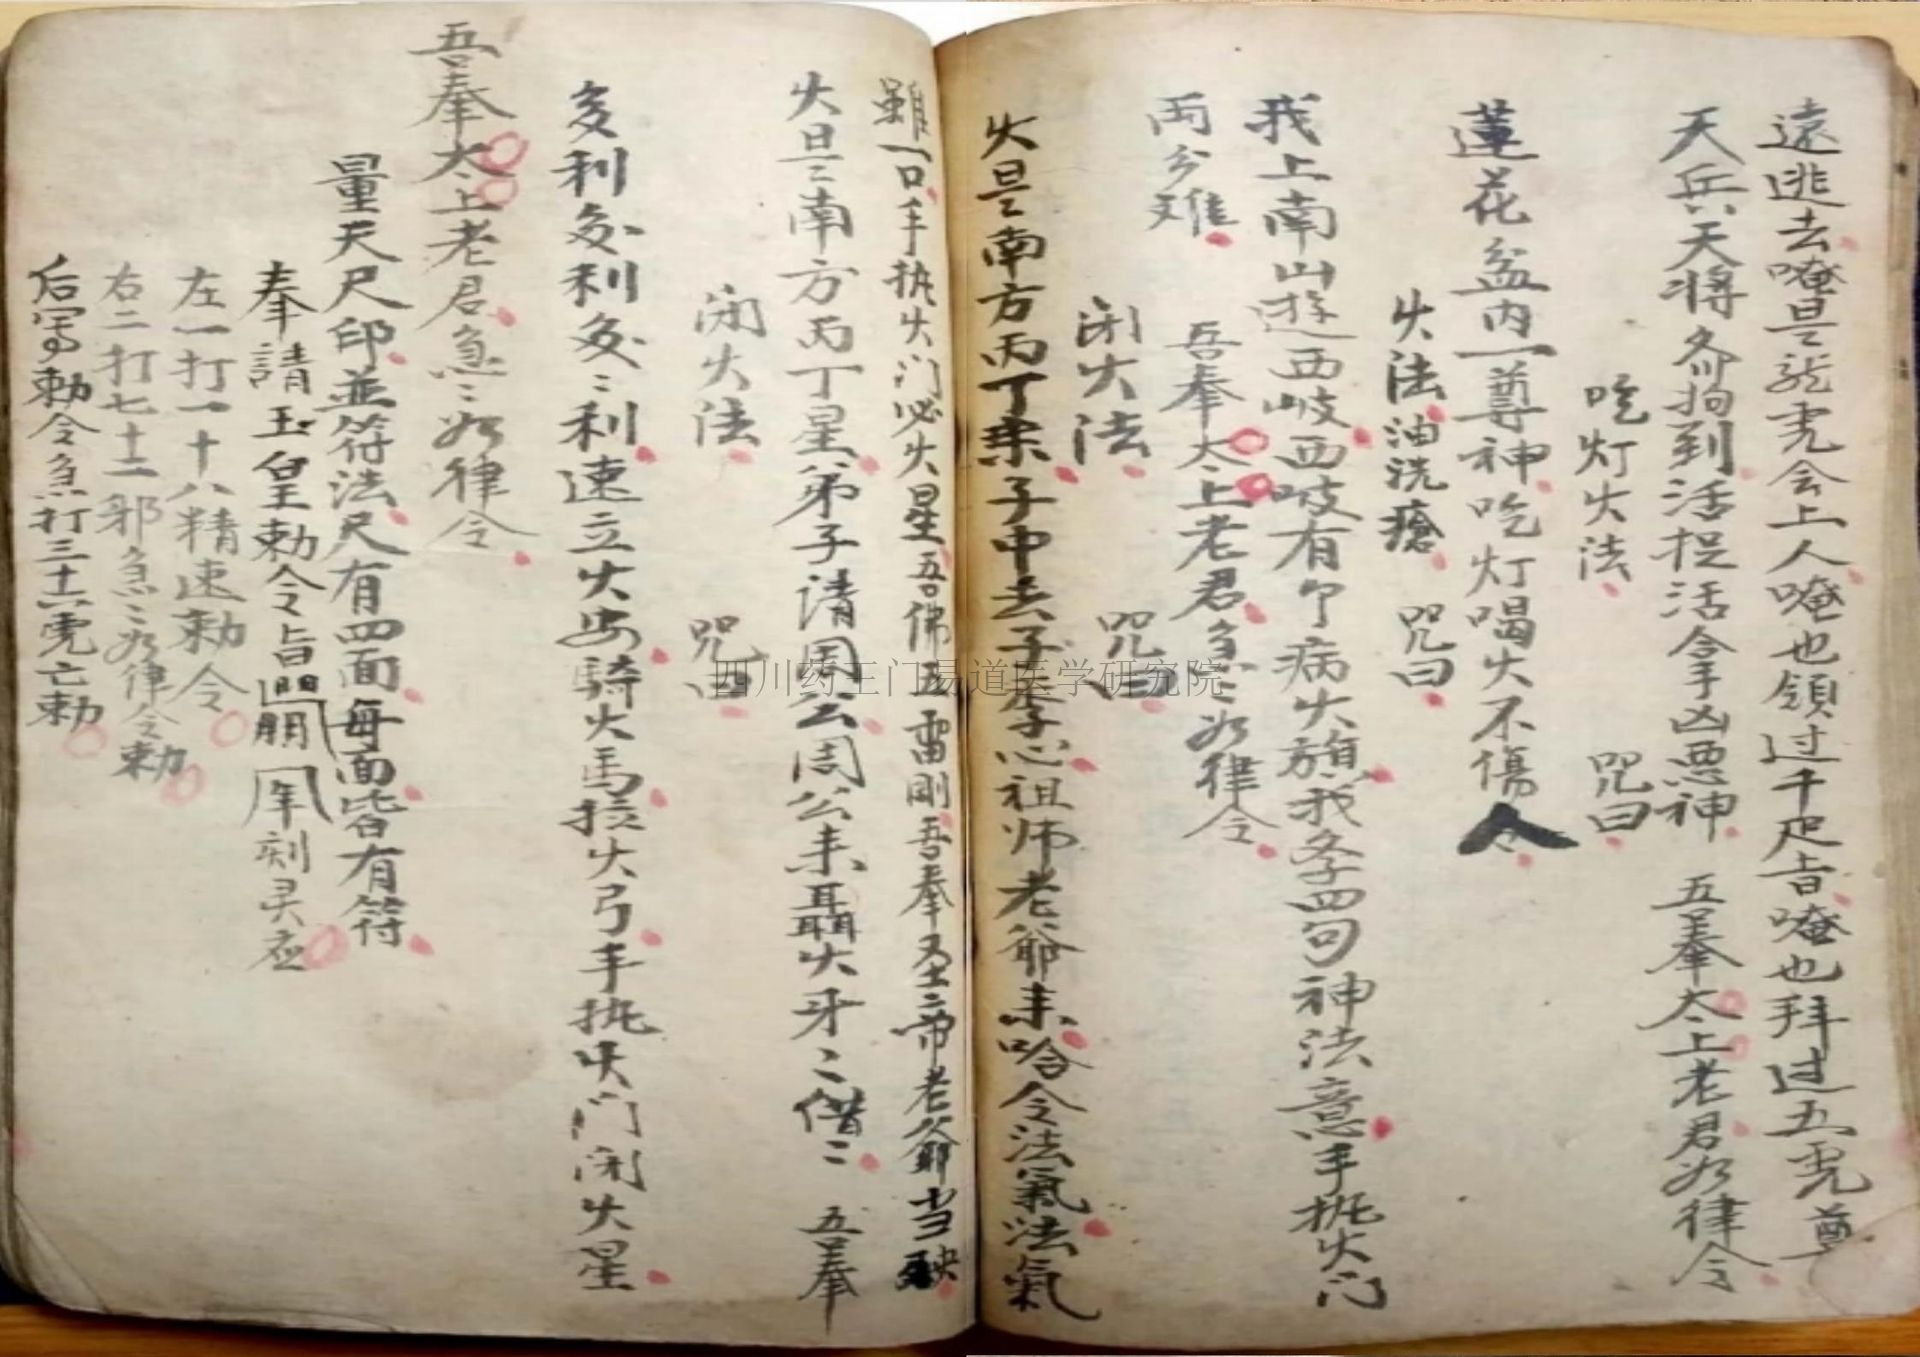 遠逃去唵是龍虎会上人唵也領过千尺旨唵也拜过五虎尊
天兵天将各拘到活捉活拿凶悪神 五奉太上老君如律令
吃灯火法 咒曰
蓮花盆内一尊神吃灯喝火不傷人
火法油洗瘡 咒曰
我上南山遊西岐西岐有个病火旗我奉四句神法意手执火门
両分难 吾奉太上老君急〻如律令
闭火法 咒曰
火是南方丙丁来子中去子奉心祖师老爺来哈令法氣法氣
雖一口手执火门必火星吾佛五雷剛吾奉
火是南方丙丁星弟子请周公周公来火牙〻借〻 五奉
闭火法 咒曰
多利多利多〻利速立火安騎火馬拉火弓手执火门闭火星
吾奉太上老君急〻如律令
量天尺印並符法尺有四面每面皆有符
奉請玉皇勅令旨刻灵应
左一打一十八精速勅令
右二打七十二邪急〻如律令勅
后写勅令急打三十六鬼亡勅
四川药王门易道医学研究院